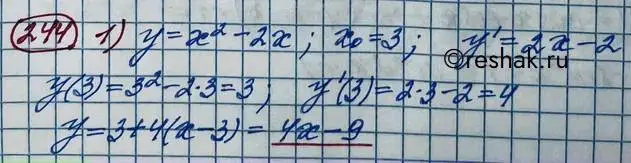 244 1) y = x² - 2x; x₀ = 3; y' = 2x - 2
©reshak.ru
y(3) = 3² - 2·3 = 3; y'(3) = 2·3 - 2 = 4
y = 3 + 4(x - 3) = 4x - 9